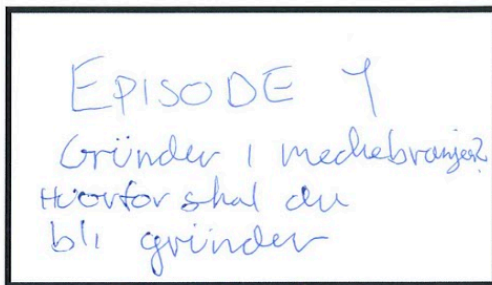 EPISODE 1
Gründer i mediebransjen?
Hvorfor skal du
bli gründer